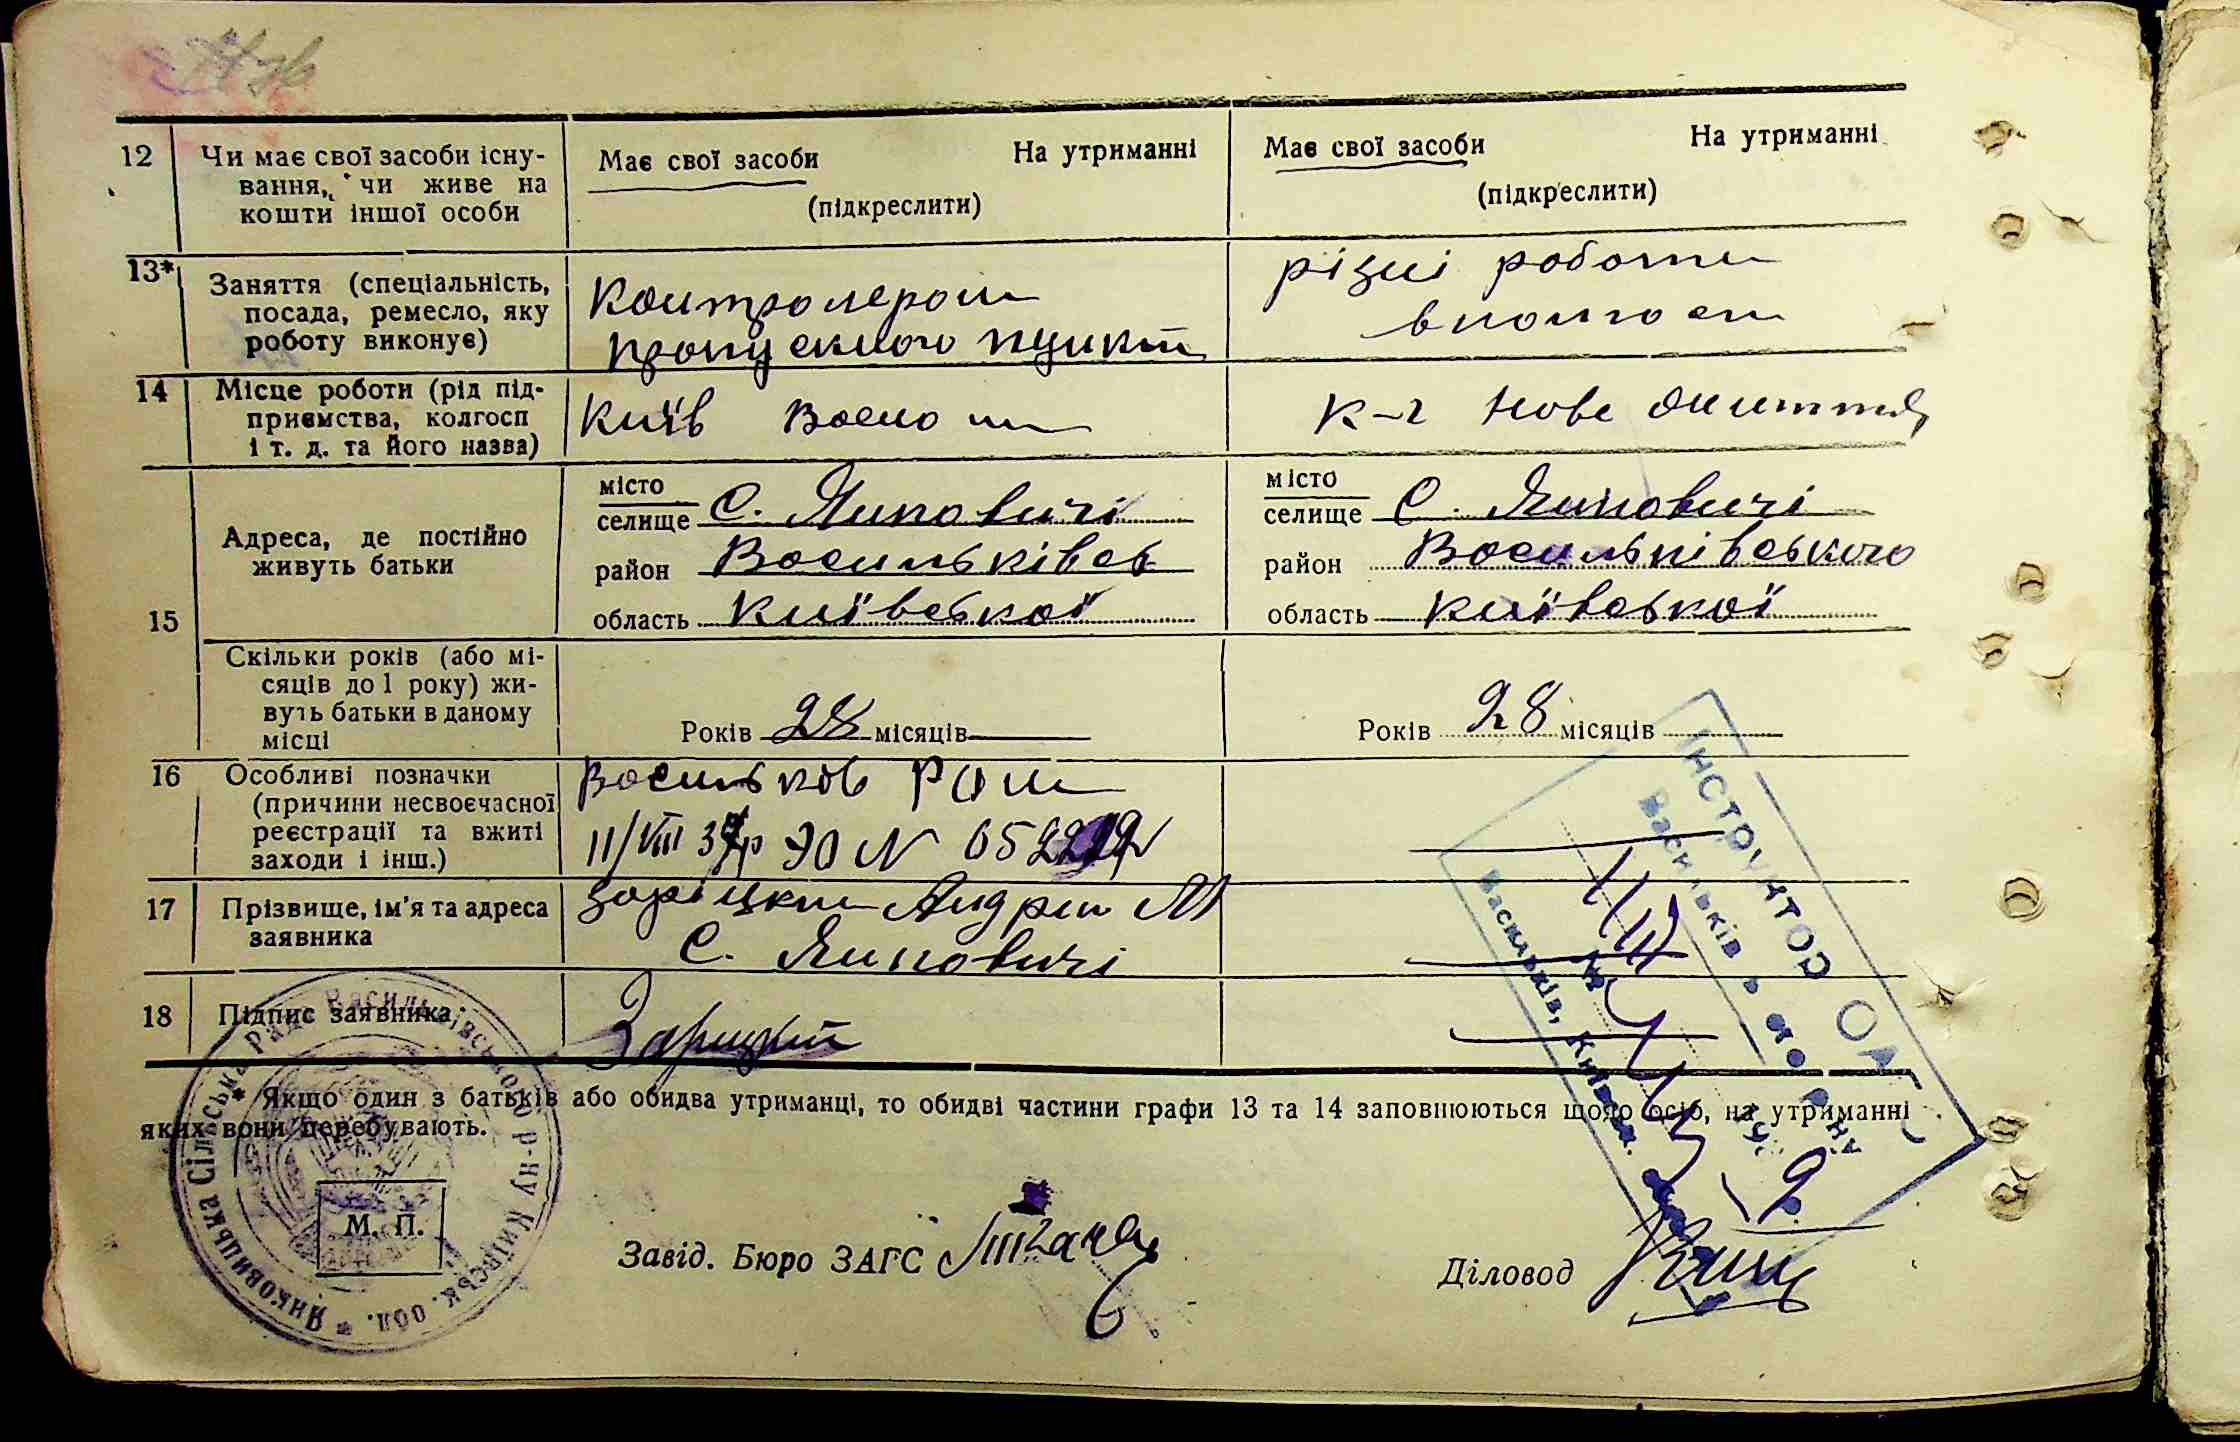 12 Чи має свої засоби існу-
вання, чи живе на
кошти іншої особи
Має свої засоби На утриманні
(підкреслити)
Має свої засоби На утриманні
(підкреслити)
13* Заняття (спеціальність,
посада, ремесло, яку
роботу виконує)
Контролером
пропускного пункт
різні роботи
в колгосп
14 Місце роботи (рід під-
приємства, колгосп
і т. д. та його назва)
Київ
к-г Нове життя
15 Адреса, де постійно
живуть батьки
місто
селище С. Янковичі
район Васильківськ
область Київської
місто
селище С. Янковичі
район Васильківського
область Київської
Скільки років (або мі-
сяців до 1 року) жи-
вуть батьки в даному
місці
Років 28 місяців
Років 28 місяців
16 Особливі позначки
(причини несвоєчасної
реєстрації та вжиті
заходи і інш.)
Васильков
11/VIII
17 Прізвище, ім'я та адреса
заявника
Заріцкий Андрій М
С. Янковичі
18 Підпис заявника
Зарицкий
* Якщо один з батьків або обидва утриманці, то обидві частини графи 13 та 14 заповнюються щодо осіб, на утриманні
яких вони перебувають.
М. П.
Завід. Бюро ЗАГС
Діловод
Янковицька Сільська Рада Васильківського р-ну Київськ. обл.
ІНСТРУКТОР